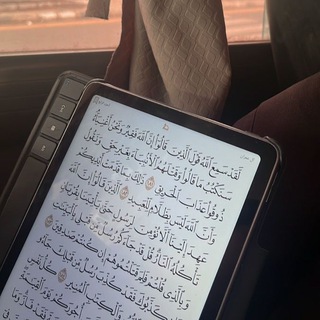 لَّقَدْ سَمِعَ ٱللَّهُ قَوْلَ ٱلَّذِينَ قَالُوٓا۟ إِنَّ ٱللَّهَ فَقِيرٌ وَنَحْنُ أَغْنِيَآءُ
سَنَكْتُبُ مَا قَالُوا۟ وَقَتْلَهُمُ ٱلْأَنۢبِيَآءَ بِغَيْرِ حَقٍّ وَنَقُولُ
ذُوقُوا۟ عَذَابَ ٱلْحَرِيقِ ١٨١ ذَٰلِكَ بِمَا قَدَّمَتْ أَيْدِيكُمْ
وَأَنَّ ٱللَّهَ لَيْسَ بِظَلَّامٍ لِّلْعَبِيدِ ١٨٢ ٱلَّذِينَ قَالُوٓا۟ إِنَّ ٱللَّهَ
عَهِدَ إِلَيْنَآ أَلَّا نُؤْمِنَ لِرَسُولٍ حَتَّىٰ يَأْتِيَنَا بِقُرْبَانٍ
تَأْكُلُهُ ٱلنَّارُ قُلْ قَدْ جَآءَكُمْ رُسُلٌ مِّن قَبْلِى بِٱلْبَيِّنَٰتِ
وَبِٱلَّذِى قُلْتُمْ فَلِمَ قَتَلْتُمُوهُمْ إِن كُنتُمْ صَٰدِقِينَ ١٨٣
كَذَّبُوكَ فَقَدْ كُذِّبَ رُسُلٌ مِّن قَبْلِكَ جَآءُو
وَٱلْكِتَٰبِ ٱلْمُنِيرِ ١٨٤ كُلُّ نَفْسٍ
أُجُورَكُمْ يَوْمَ ٱلْقِيَٰمَةِ
فَقَدْ فَازَ وَمَا